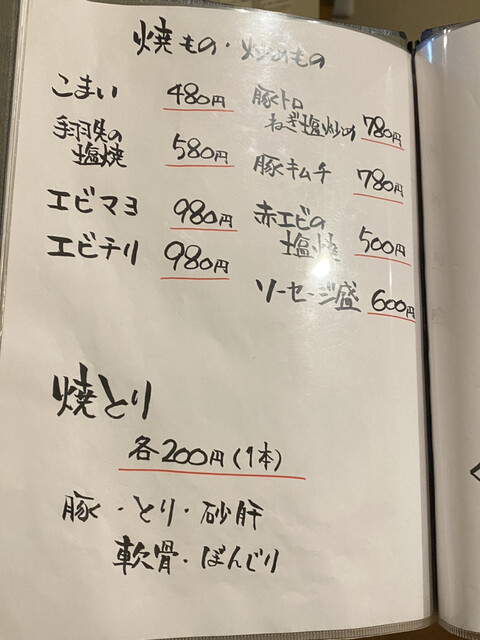 焼もの・炒めもの
こまい 480円
手羽先の
塩焼 580円
エビマヨ 980円
エビチリ 980円
豚トロ
ねぎ塩炒め 780円
豚キムチ 780円
赤エビの
塩焼 500円
ソーセージ盛 600円
焼とり
各200円(1本)
豚・とり・砂肝
軟骨・ぼんじり